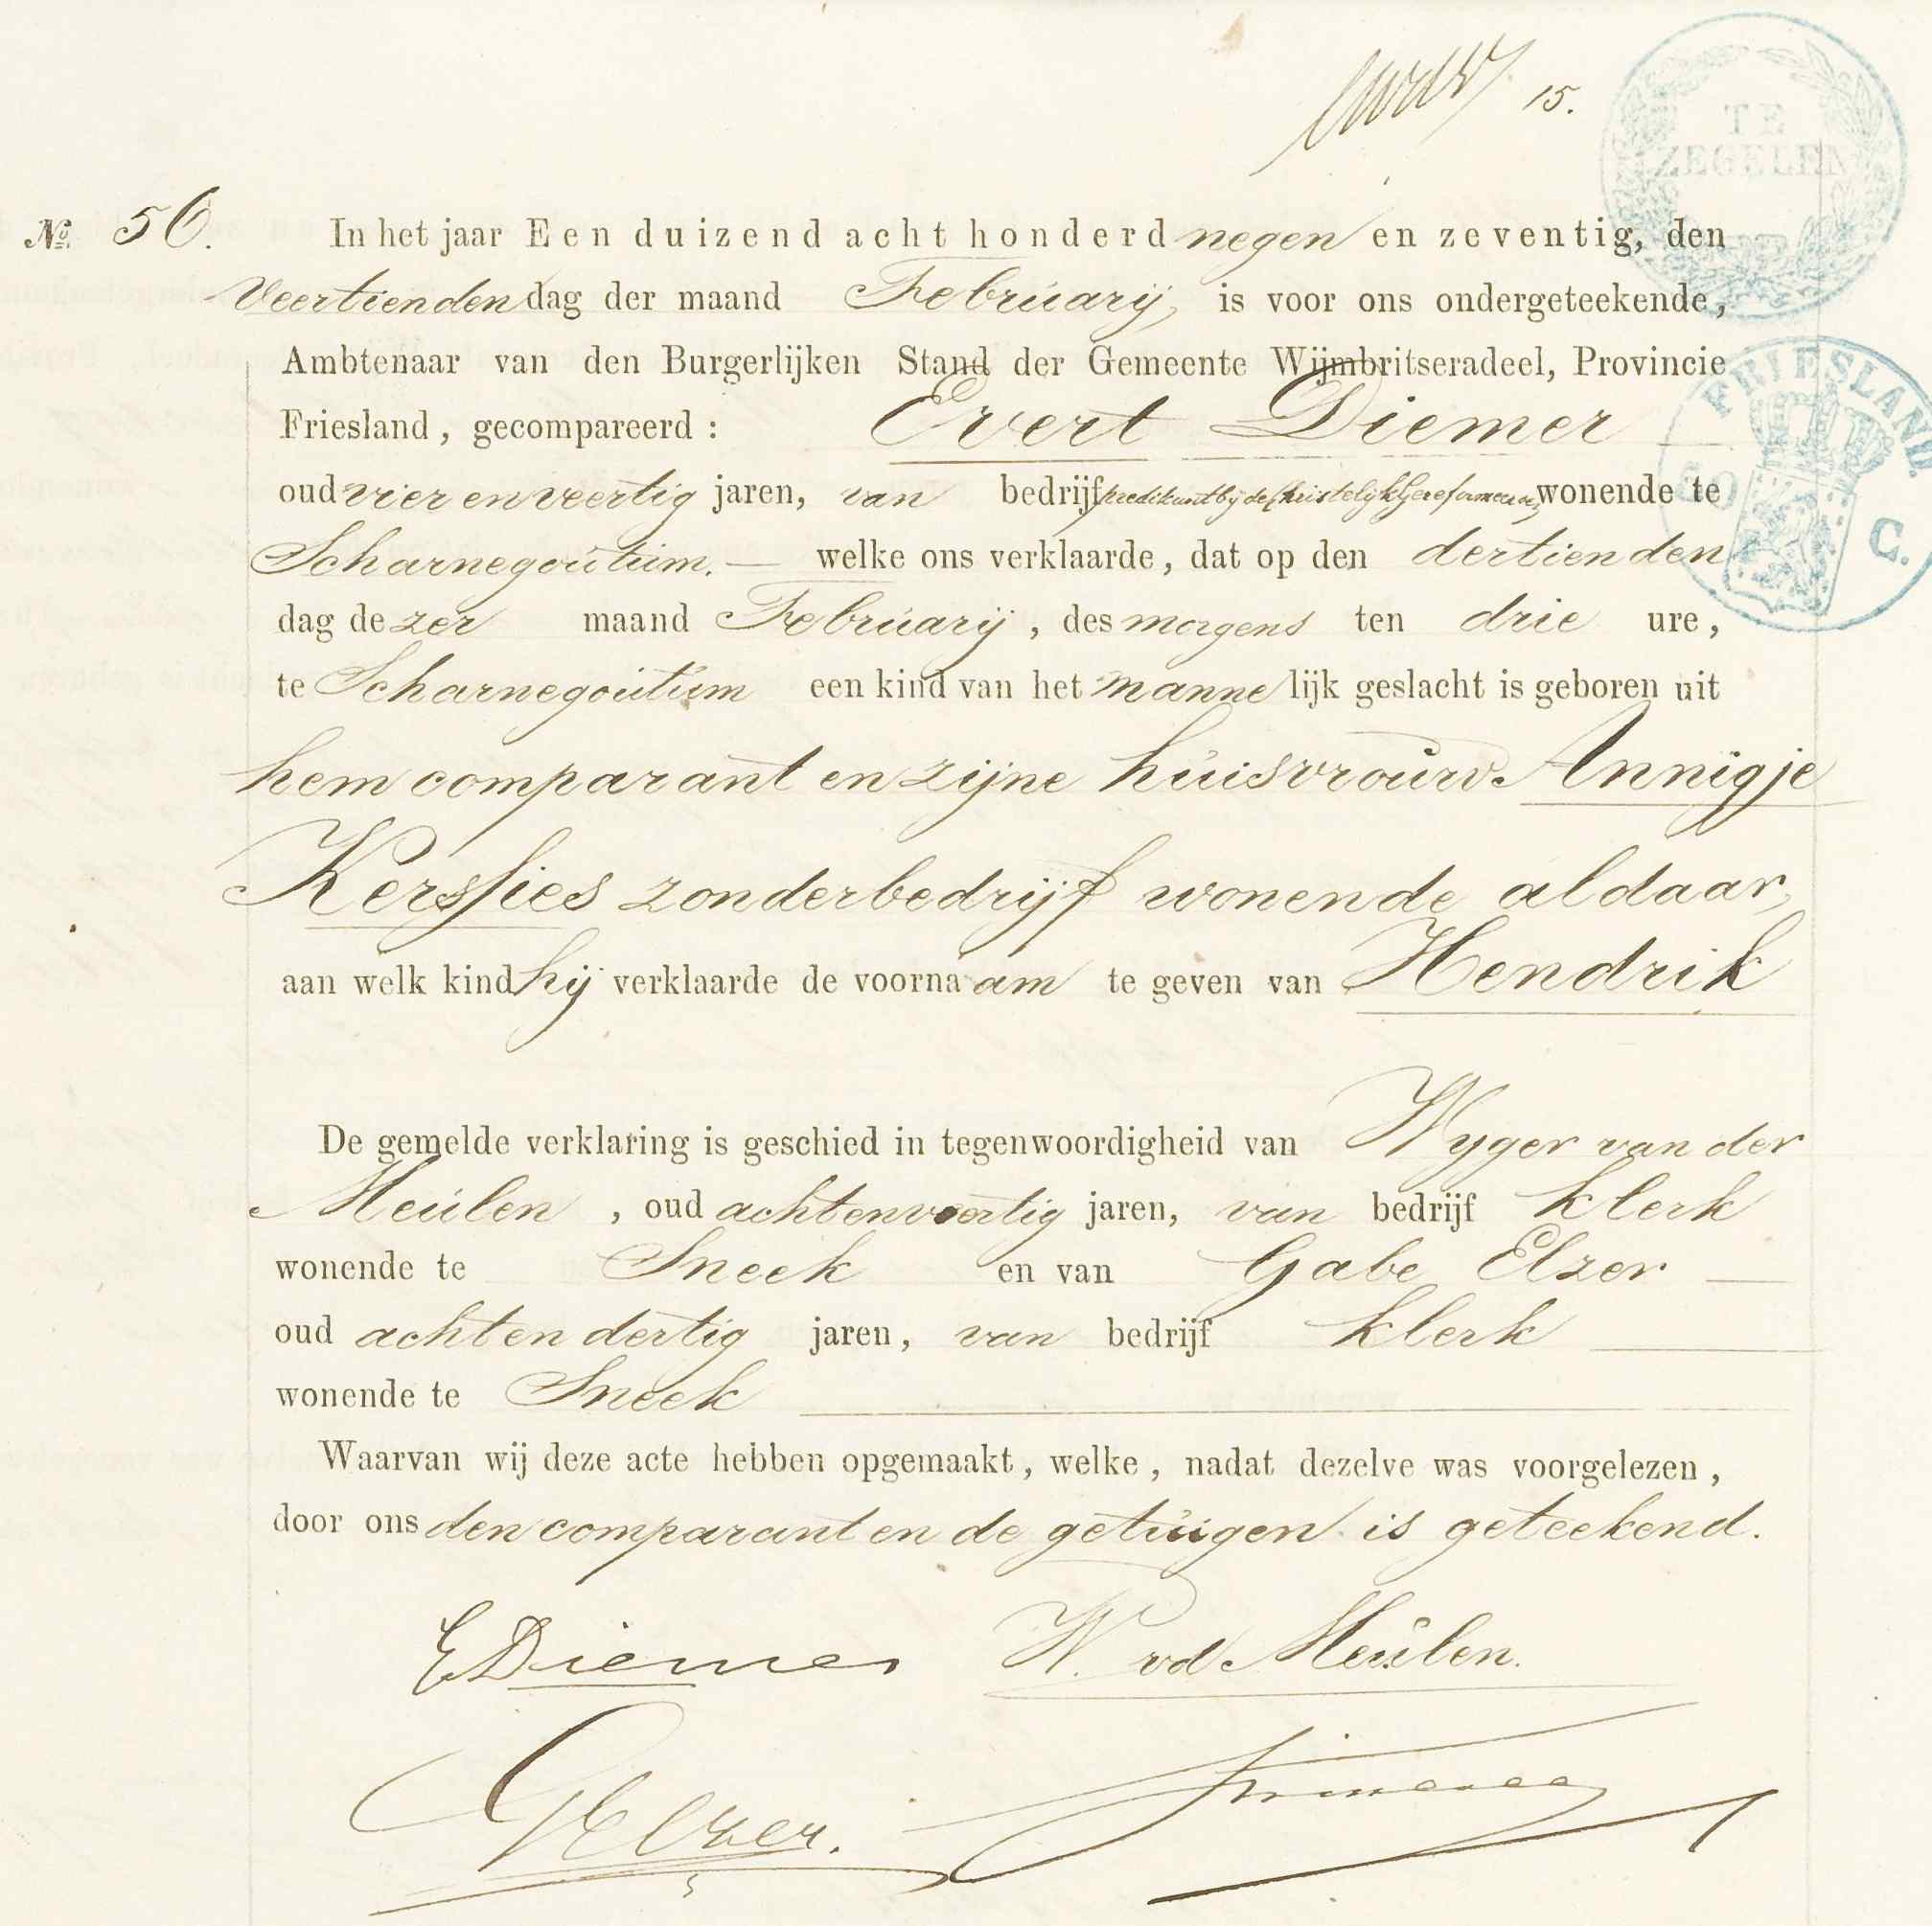 15.
TE
ZEGELEN
No. 56. In het jaar Een duizend acht honderd negen en zeventig, den
Veertienden dag der maand February, is voor ons ondergeteekende,
Ambtenaar van den Burgerlijken Stand der Gemeente Wijmbritseradeel, Provincie
Friesland, gecompareerd: Evert Diemer
oud vier en veertig jaren, van bedrijf predikant bij de Christelijk Gereformeerde, wonende te
Scharnegoutum. — welke ons verklaarde, dat op den dertienden
dag dezer maand February, des morgens ten drie ure,
te Scharnegoutum een kind van het mannelijk geslacht is geboren uit
hem comparant en zijne huisvrouw Annigje
Kerssies zonder bedrijf wonende aldaar,
aan welk kind hij verklaarde de voornaam te geven van Hendrik
FRIESLAND.
50 C.
De gemelde verklaring is geschied in tegenwoordigheid van Wyger van der
Meulen, oud achtenveertig jaren, van bedrijf klerk
wonende te Sneek en van Gabe Elzer
oud achtendertig jaren, van bedrijf klerk
wonende te Sneek
Waarvan wij deze acte hebben opgemaakt, welke, nadat dezelve was voorgelezen,
door ons den comparant en de getuigen is geteekend.
E Diemer W. vd Meulen.
G Elzer.